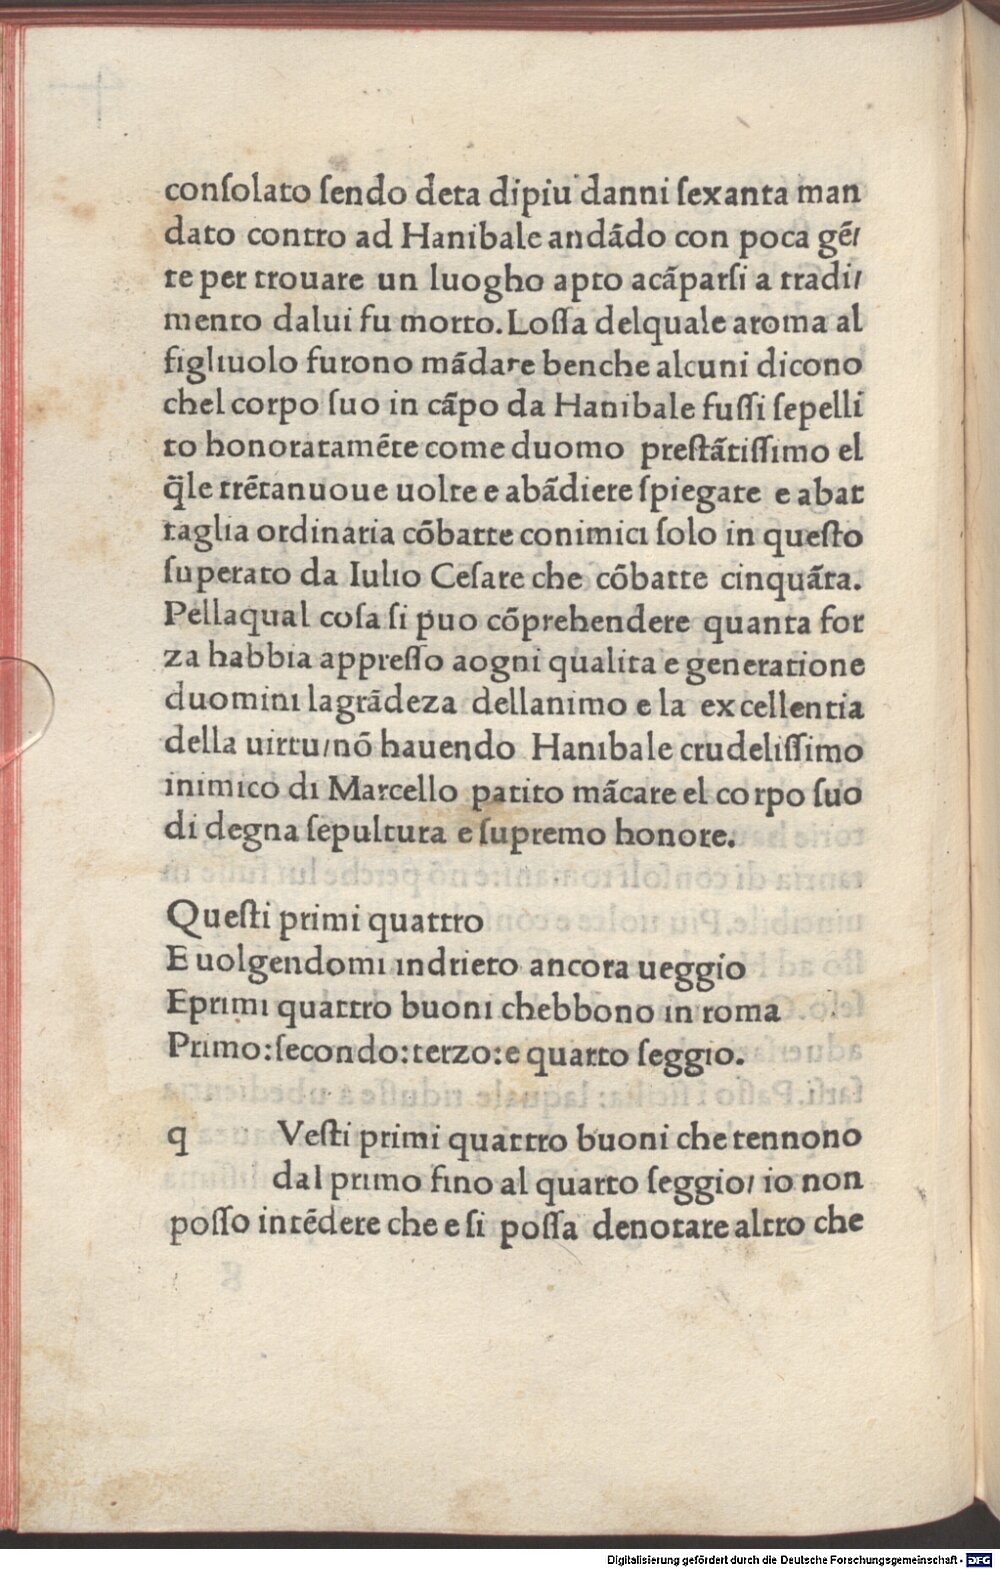 conſolato ſendo deta dipiu danni ſexanta man
dato contro ad Hanibale andādo con poca gē/
te per trouare un luogho apto acāparſi a tradi/
mento dalui fu morto. Loſſa delquale aroma al
figliuolo furono mādate benche alcuni dicono
chel corpo ſuo in cāpo da Hanibale fuſſi ſepelli
to honoratamēte come duomo preſtātiſſimo el
q̄le trētanuoue uolte e abādiere ſpiegate e abat
taglia ordinaria cōbatte conimici ſolo in queſto
ſuperato da Iulio Ceſare che cōbatte cinquāta.
Pellaqual coſa ſi puo cōprehendere quanta for
za habbia appreſſo aogni qualita e generatione
duomini lagrādeza dellanimo e la excellentia
della uirtu/nō hauendo Hanibale crudeliſſimo
inimico di Marcello patito mācare el corpo ſuo
di degna ſepultura e ſupremo honore.
Queſti primi quattro
E uolgendomi indrieto ancora ueggio
Eprimi quattro buoni chebbono in roma
Primo:ſecondo:terzo:e quarto ſeggio.
q Veſti primi quattro buoni che tennono
dal primo fino al quarto ſeggio/ io non
poſſo intēdere che e ſi poſſa denotare altro che
Digitalisierung gefördert durch die Deutsche Forschungsgemeinschaft - DFG